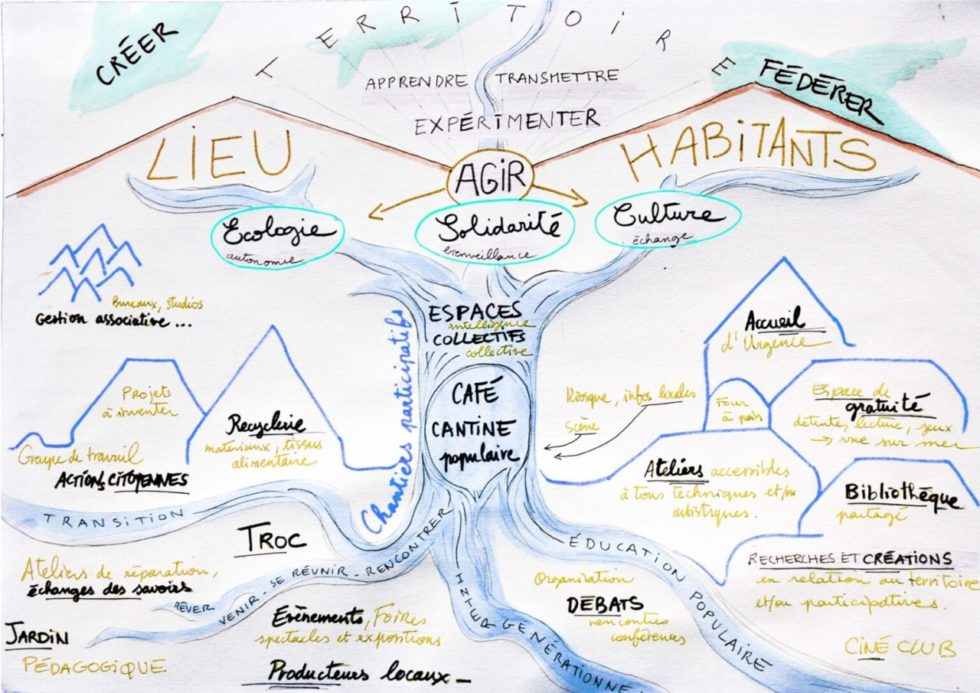 CRÉER
TERRITOIRE
APPRENDRE TRANSMETTRE
EXPÉRIMENTER
FÉDÉRER
LIEU
AGIR
HABITANTS
Ecologie
autonomie
Solidarité
bienveillance
Culture
échange
Bureaux, studios
Gestion associative...
ESPACES
intelligence
COLLECTIFS
collective
Chantiers participatifs
CAFÉ
CANTINE
populaire
Projets
à inventer
Groupe de travail
ACTIONS CITOYENNES
Recyclerie
materiaux, tissus
alimentaire
Kiosque, infos locales
Scène
Accueil
d'Urgence
Four
à pain
Espace de
gratuité
détente, lecture, jeux
→ vue sur mer
Ateliers accessibles
à tous techniques et/ou
artistiques.
Bibliothèque
partagé
TRANSITION
TROC
Ateliers de réparation,
échanges des savoirs
RÊVER VENIR - SE RÉUNIR - RENCONTRER
JARDIN
PÉDAGOGIQUE
Evènements, Foires
spectacles et expositions
Producteurs locaux _
INTERGÉNÉRATIONNEL
ÉDUCATION POPULAIRE
Organisation
DÉBATS
rencontres
conférences
RECHERCHES ET CRÉATIONS
en relation au territoire
et/ou participatives.
CINÉ CLUB